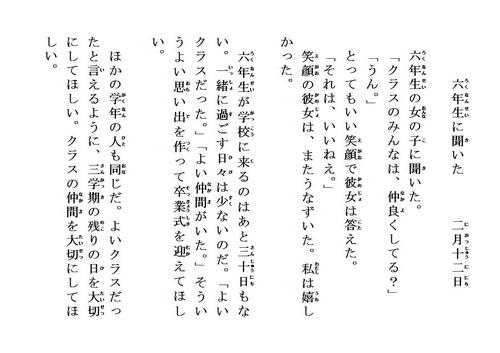 六年生に聞いた　　二月十二日
六年生の女の子に聞いた。
「クラスのみんなは、仲良くしてる？」
「うん。」
とってもいい笑顔で彼女は答えた。
「それは、いいねえ。」
笑顔の彼女は、またうなずいた。私は嬉し
かった。
六年生が学校に来るのはあと三十日もな
い。一緒に過ごす日々は少ないのだ。「よい
クラスだった。」「よい仲間がいた。」そうい
うよい思い出を作って卒業式を迎えてほし
い。
ほかの学年の人も同じだ。よいクラスだっ
たと言えるように、三学期の残りの日を大切
にしてほしい。クラスの仲間を大切にしてほ
しい。